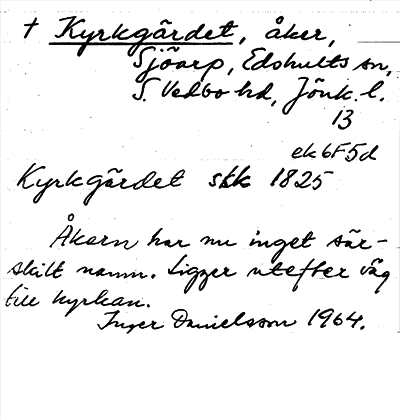 † Kyrkgärdet, åker,
Sjöarp, Edshults sn,
S. Vedbo hd, Jönk. l.
13
ek 6F5d
Kyrkgärdet skk 1825
Åkern har nu inget sär-
skilt namn. Ligger utefter väg
till kyrkan.
Inger Danielsson 1964.